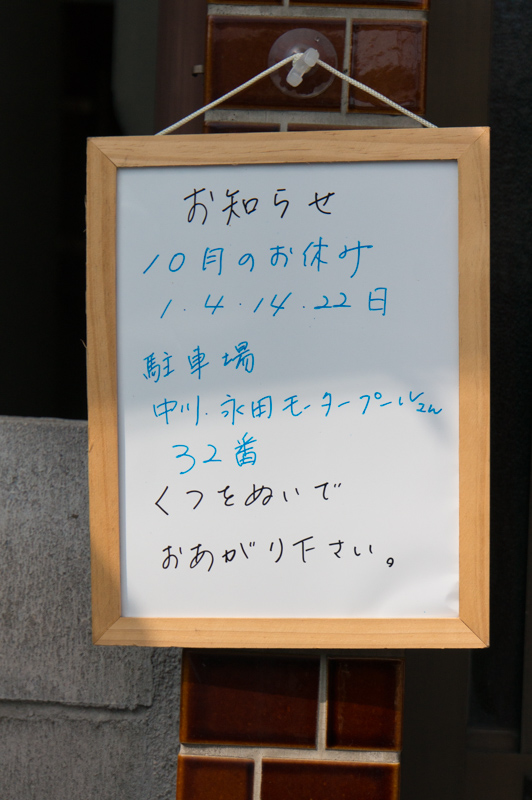 お知らせ
10月のお休み
1.4.14.22日
駐車場
中川.永田モータープールさん
32番
くつをぬいで
おあがり下さい。